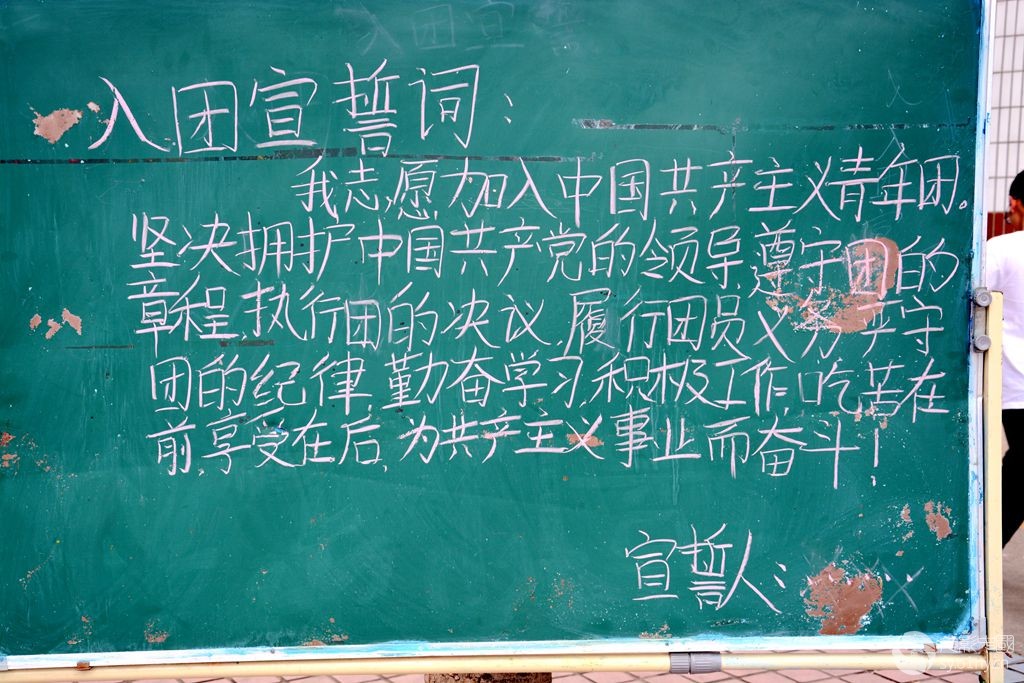 入团宣誓词:
我志愿加入中国共产主义青年团。
坚决拥护中国共产党的领导,遵守团的
章程,执行团的决议,履行团员义务,严守
团的纪律,勤奋学习,积极工作,吃苦在
前,享受在后,为共产主义事业而奋斗!
宣誓人: